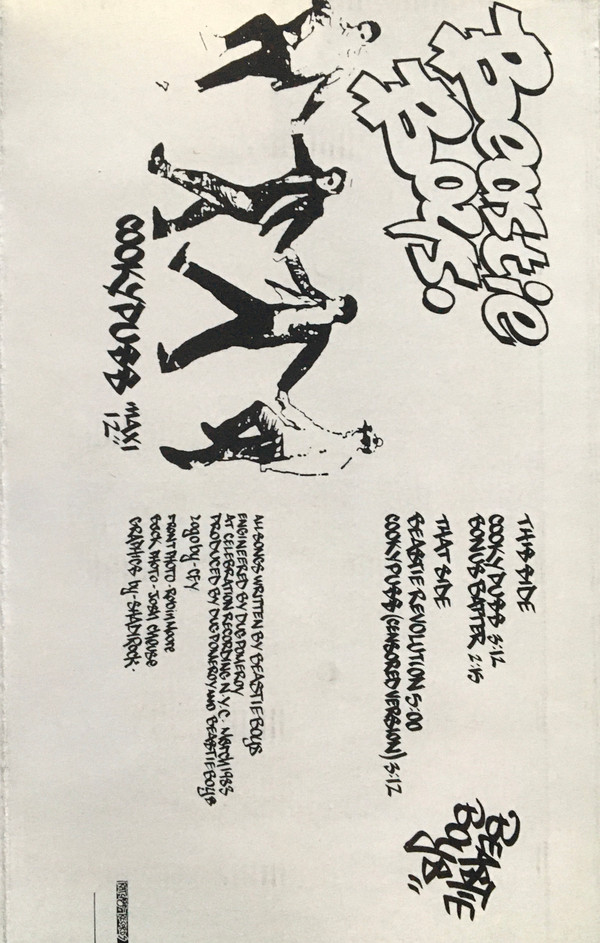 Beastie
Boys.
COOKY PUSS MAXI
12"
THIS SIDE
COOKY PUSS 3:12
BONUS BATTER 2:15
THAT SIDE
BEASTIE REVOLUTION 5:00
COOKY PUSS (CENSORED VERSION) 3:12
ALL SONGS WRITTEN BY BEASTIE BOYS
ENGINEERED BY DUG POMEROY
AT CELEBRATION RECORDING N.Y.C. MARCH 1983
PRODUCED BY DUG POMEROY AND BEASTIE BOYS
Logo by - CEY
FRONT PHOTO - Robin Moore
BACK PHOTO - JOSH CHEUSE
GRAPHICS by - SHADY ROCK.
BEASTIE
BOYS